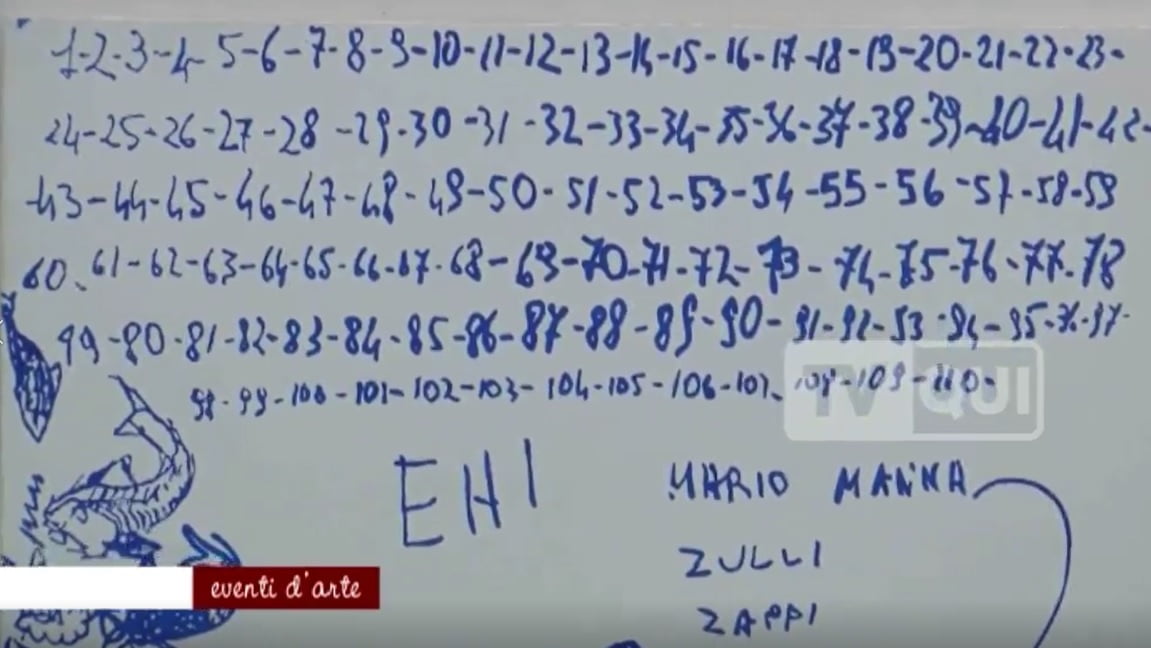 1-2-3-4-5-6-7-8-9-10-11-12-13-14-15-16-17-18-19-20-21-22-23-
24-25-26-27-28-29-30-31-32-33-34-35-36-37-38-39-40-41-42-
43-44-45-46-47-48-49-50-51-52-53-54-55-56-57-58-59
60-61-62-63-64-65-66-67-68-69-70-71-72-73-74-75-76-77-78
99-80-81-82-83-84-85-86-87-88-89-90-91-92-93-94-95-96-97-
98-99-100-101-102-103-104-105-106-107-108-109-110-
TV QUI
EHI
MARIO MANNA
ZULLI
ZAPPI
eventi d'arte